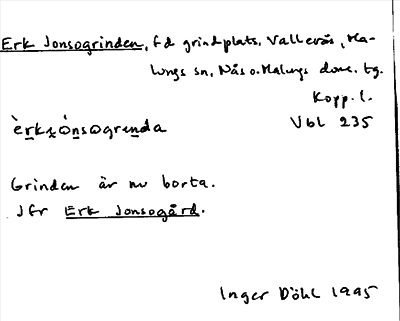 Erk Jonsogrinden, f d grindplats, Vallerås, Ma-
lungs sn, Nås o. Malungs doms. tg.
Kopp. l.
Vbl 235
Grinden är nu borta.
Jfr Erk Jonsogård.
Inger Döhl 1995